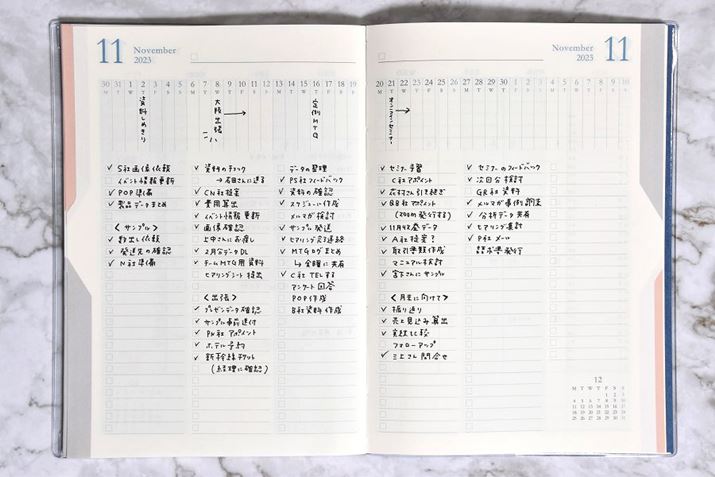 11
November
2023
30 31 1 2 3 4 5 6 7 8 9 10 11 12 13 14 15 16 17 18 19
M T W T F S S M T W T F S S M T W T F S S
資料しめきり
大阪出張
定例MTG
✓ S社画像依頼
イベント情報更新
✓ POP準備
✓ 製品データまとめ
〈サンプル〉
✓ 数出し依頼
✓ 発送先の確認
✓ N社準備
✓ 資料のチェック
→石田さんに送る
✓ CN社提案
✓ 費用算出
✓ イベント情報更新
✓ 画像確認
上中さんにお戻し
✓ 2月分データDL
✓ チームMTG用資料
ヒアリングシート提出
〈出張〉
✓ プレゼンデータ確認
✓ サンプル事前送付
✓ PN社アポイント
✓ ホテル予約
✓ 新幹線チケット
(経理に確認)
データの整理
✓ PS社フィードバック
✓ 資料の確認
✓ スケジュール作成
✓ メルマガ検討
✓ サンプル発送
✓ ヒアリング先連絡
✓ MTGログまとめ
→全体に共有
✓ C社TELする
アンケート回答
POP作成
B社資料作成
November
2023
11
20 21 22 23 24 25 26 27 28 29 30 1 2 3 4 5 6 7 8 9 10
M T W T F S S M T W T F S S M T W T F S S
オンラインセミナー
✓ セミナー予習
C社アポイント
✓ 花村さん引き継ぎ
✓ BB社アポイント
✓ 11月4W発データ
✓ A社提案?
✓ 取引書類作成
マニュアル検討
✓ 宮下さんにサンプル
〈月末に向けて〉
✓ 振り返り
✓ 売上見込み算出
✓ 実績比較
フォローアップ
✓ 三上さん問合せ
✓ セミナーのフィードバック
✓ 次回分検討
GR社資料
✓ メルマガ事例調査
✓ 分析データ共有
✓ ヒアリング集計
✓ P社メール
請求書発行
12
M T W T F S S
1 2 3
4 5 6 7 8 9 10
11 12 13 14 15 16 17
18 19 20 21 22 23 24
25 26 27 28 29 30 31